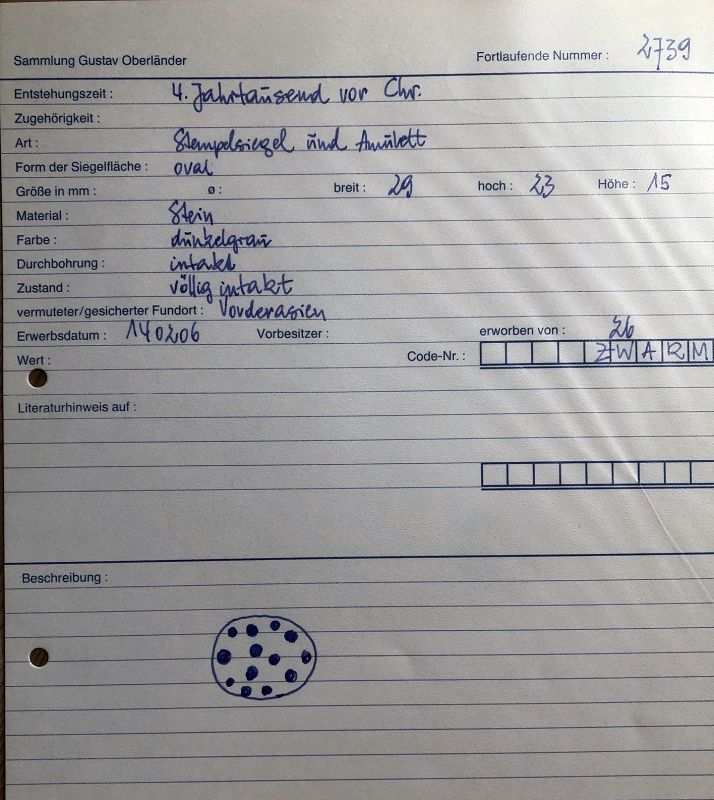 Sammlung Gustav Oberländer Fortlaufende Nummer : 2739
Entstehungszeit : 4. Jahrtausend vor Chr.
Zugehörigkeit :
Art : Stempelsiegel und Amulett
Form der Siegelfläche : oval
Größe in mm : ø : breit : 29 hoch : 23 Höhe : 15
Material : Stein
Farbe : dunkelgrau
Durchbohrung : intakt
Zustand : völlig intakt
vermuteter/gesicherter Fundort : Vorderasien
Erwerbsdatum : 140206 Vorbesitzer : erworben von : 26
Wert : Code-Nr. : ZWARM
Literaturhinweis auf :
Beschreibung :